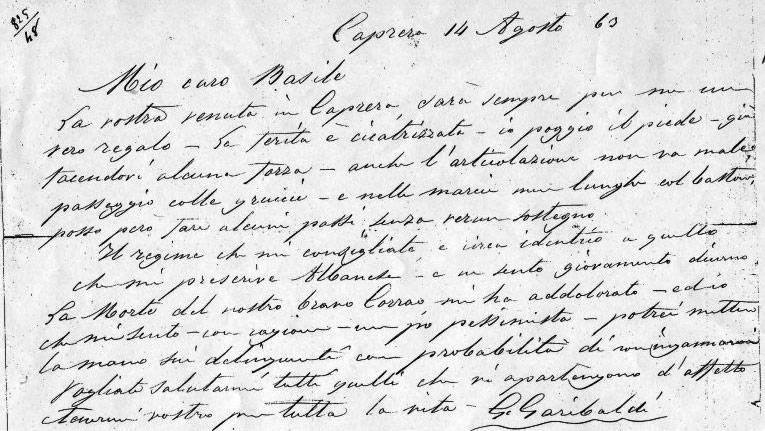 825
48
Caprera 14 Agosto 63
Mio caro Basile
La vostra venuta in Caprera, sarà sempre per me un
vero regalo – La ferita è cicatrizzata – io poggio il piede – già
facendovi alcuna forza – anche l'articolazione non va male,
passeggio colle gruccie – e nelle marcie men lunghe col bastone,
posso però fare alcuni passi senza verun sostegno.
Il regime che mi consigliate è circa identico a quello
che mi prescrive Albanese – e ne sento giovamento diurno.
La Morte del nostro bravo Corrao mi ha addolorato – ed io
che mi sento – con ragione – un po pessimista – potrei metter
la mano sui delinquenti con probabilità di non ingannarmi
Vogliate salutarmi tutti quelli che vi appartengono d'affetto
e tenermi vostro per tutta la vita – G. Garibaldi